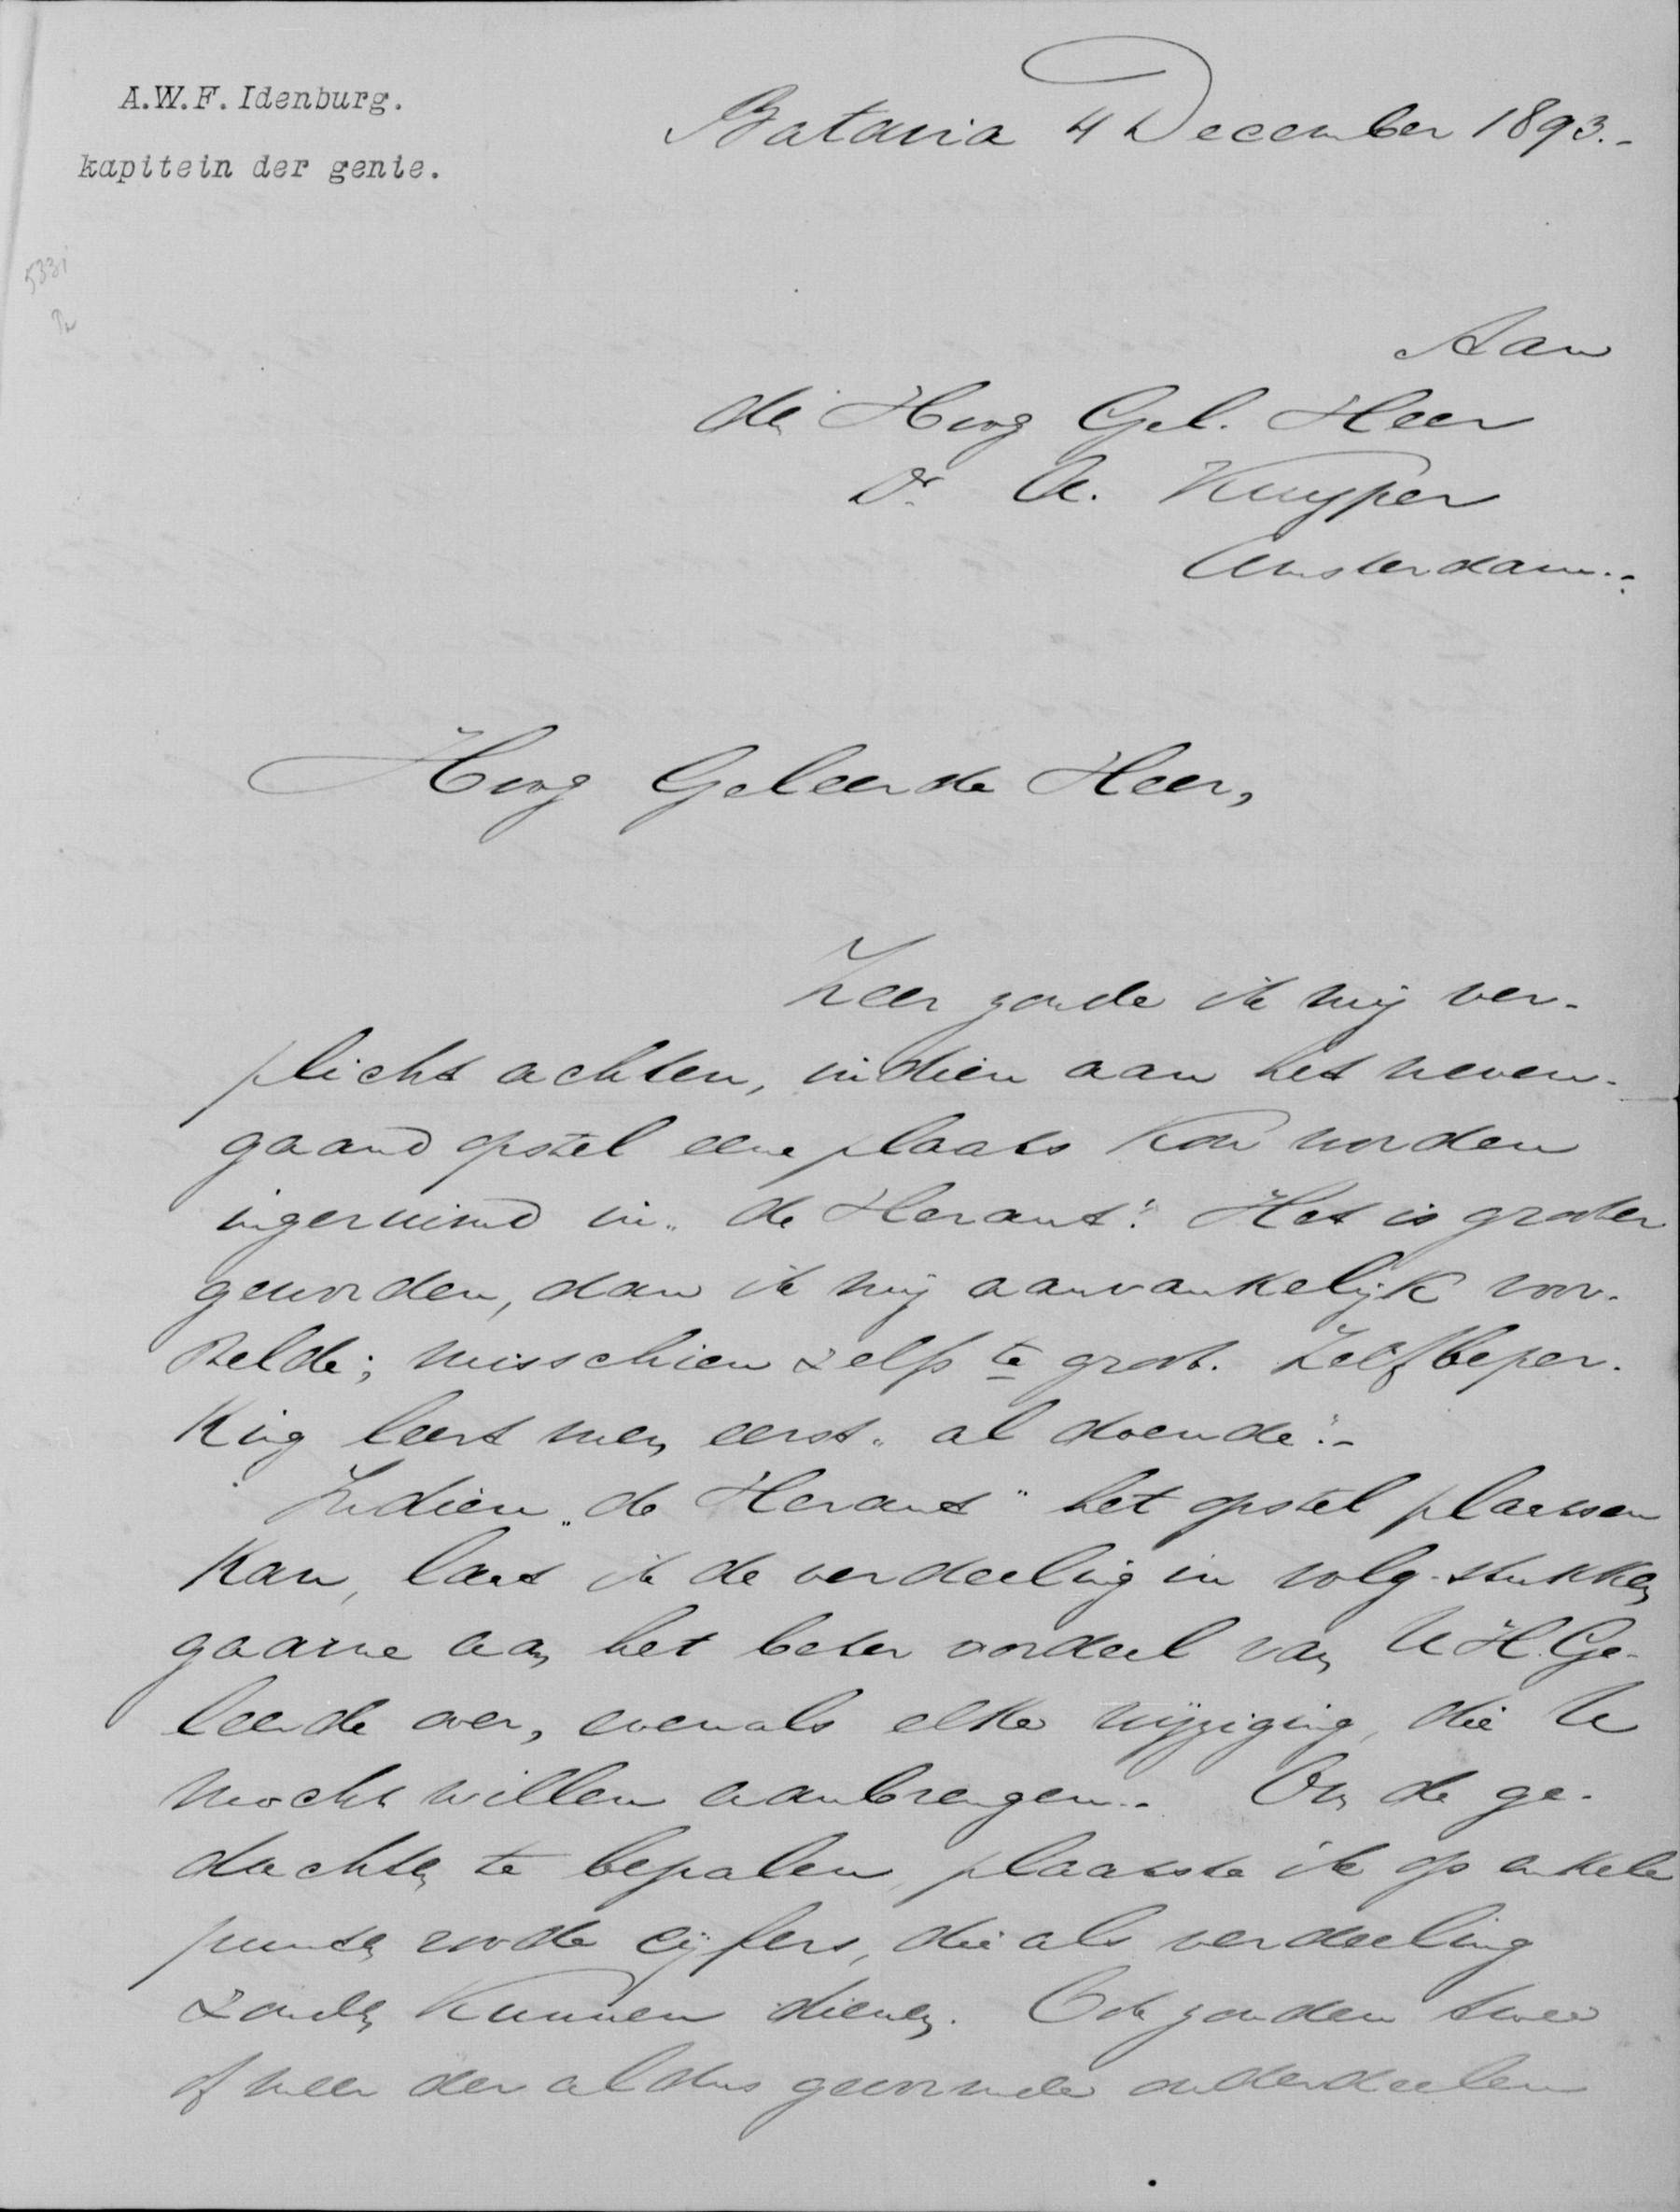 A.W.F. Idenburg.
kapitein der genie.
Batavia 4 December 1893.-
5331
Aan
den Hoog Gel. Heer
Dr. A. Kuyper
Amsterdam.-
Hoog Geleerde Heer,
Zeer zoude ik mij ver-
plicht achten, indien aan het neven-
gaand opstel eene plaats kon worden
ingeruimd in „de Heraut". Het is grooter
geworden, dan ik mij aanvankelijk voor-
stelde; misschien zelfs te groot. Zelfbeper-
king leert men eerst „al doende".-
Indien „de Heraut" het opstel plaatsen
kan, laat ik de verdeeling in volg-stukken
gaarne aan het beter oordeel van U H.Ge-
leerde over, evenals elke wijziging, die U
mocht willen aanbrengen.- Om de ge-
dachten te bepalen, plaatste ik op enkele
punten roode cijfers, die als verdeeling
zouden kunnen dienen. Ook zouden twee
of meer der aldus gevormde onderdeelen